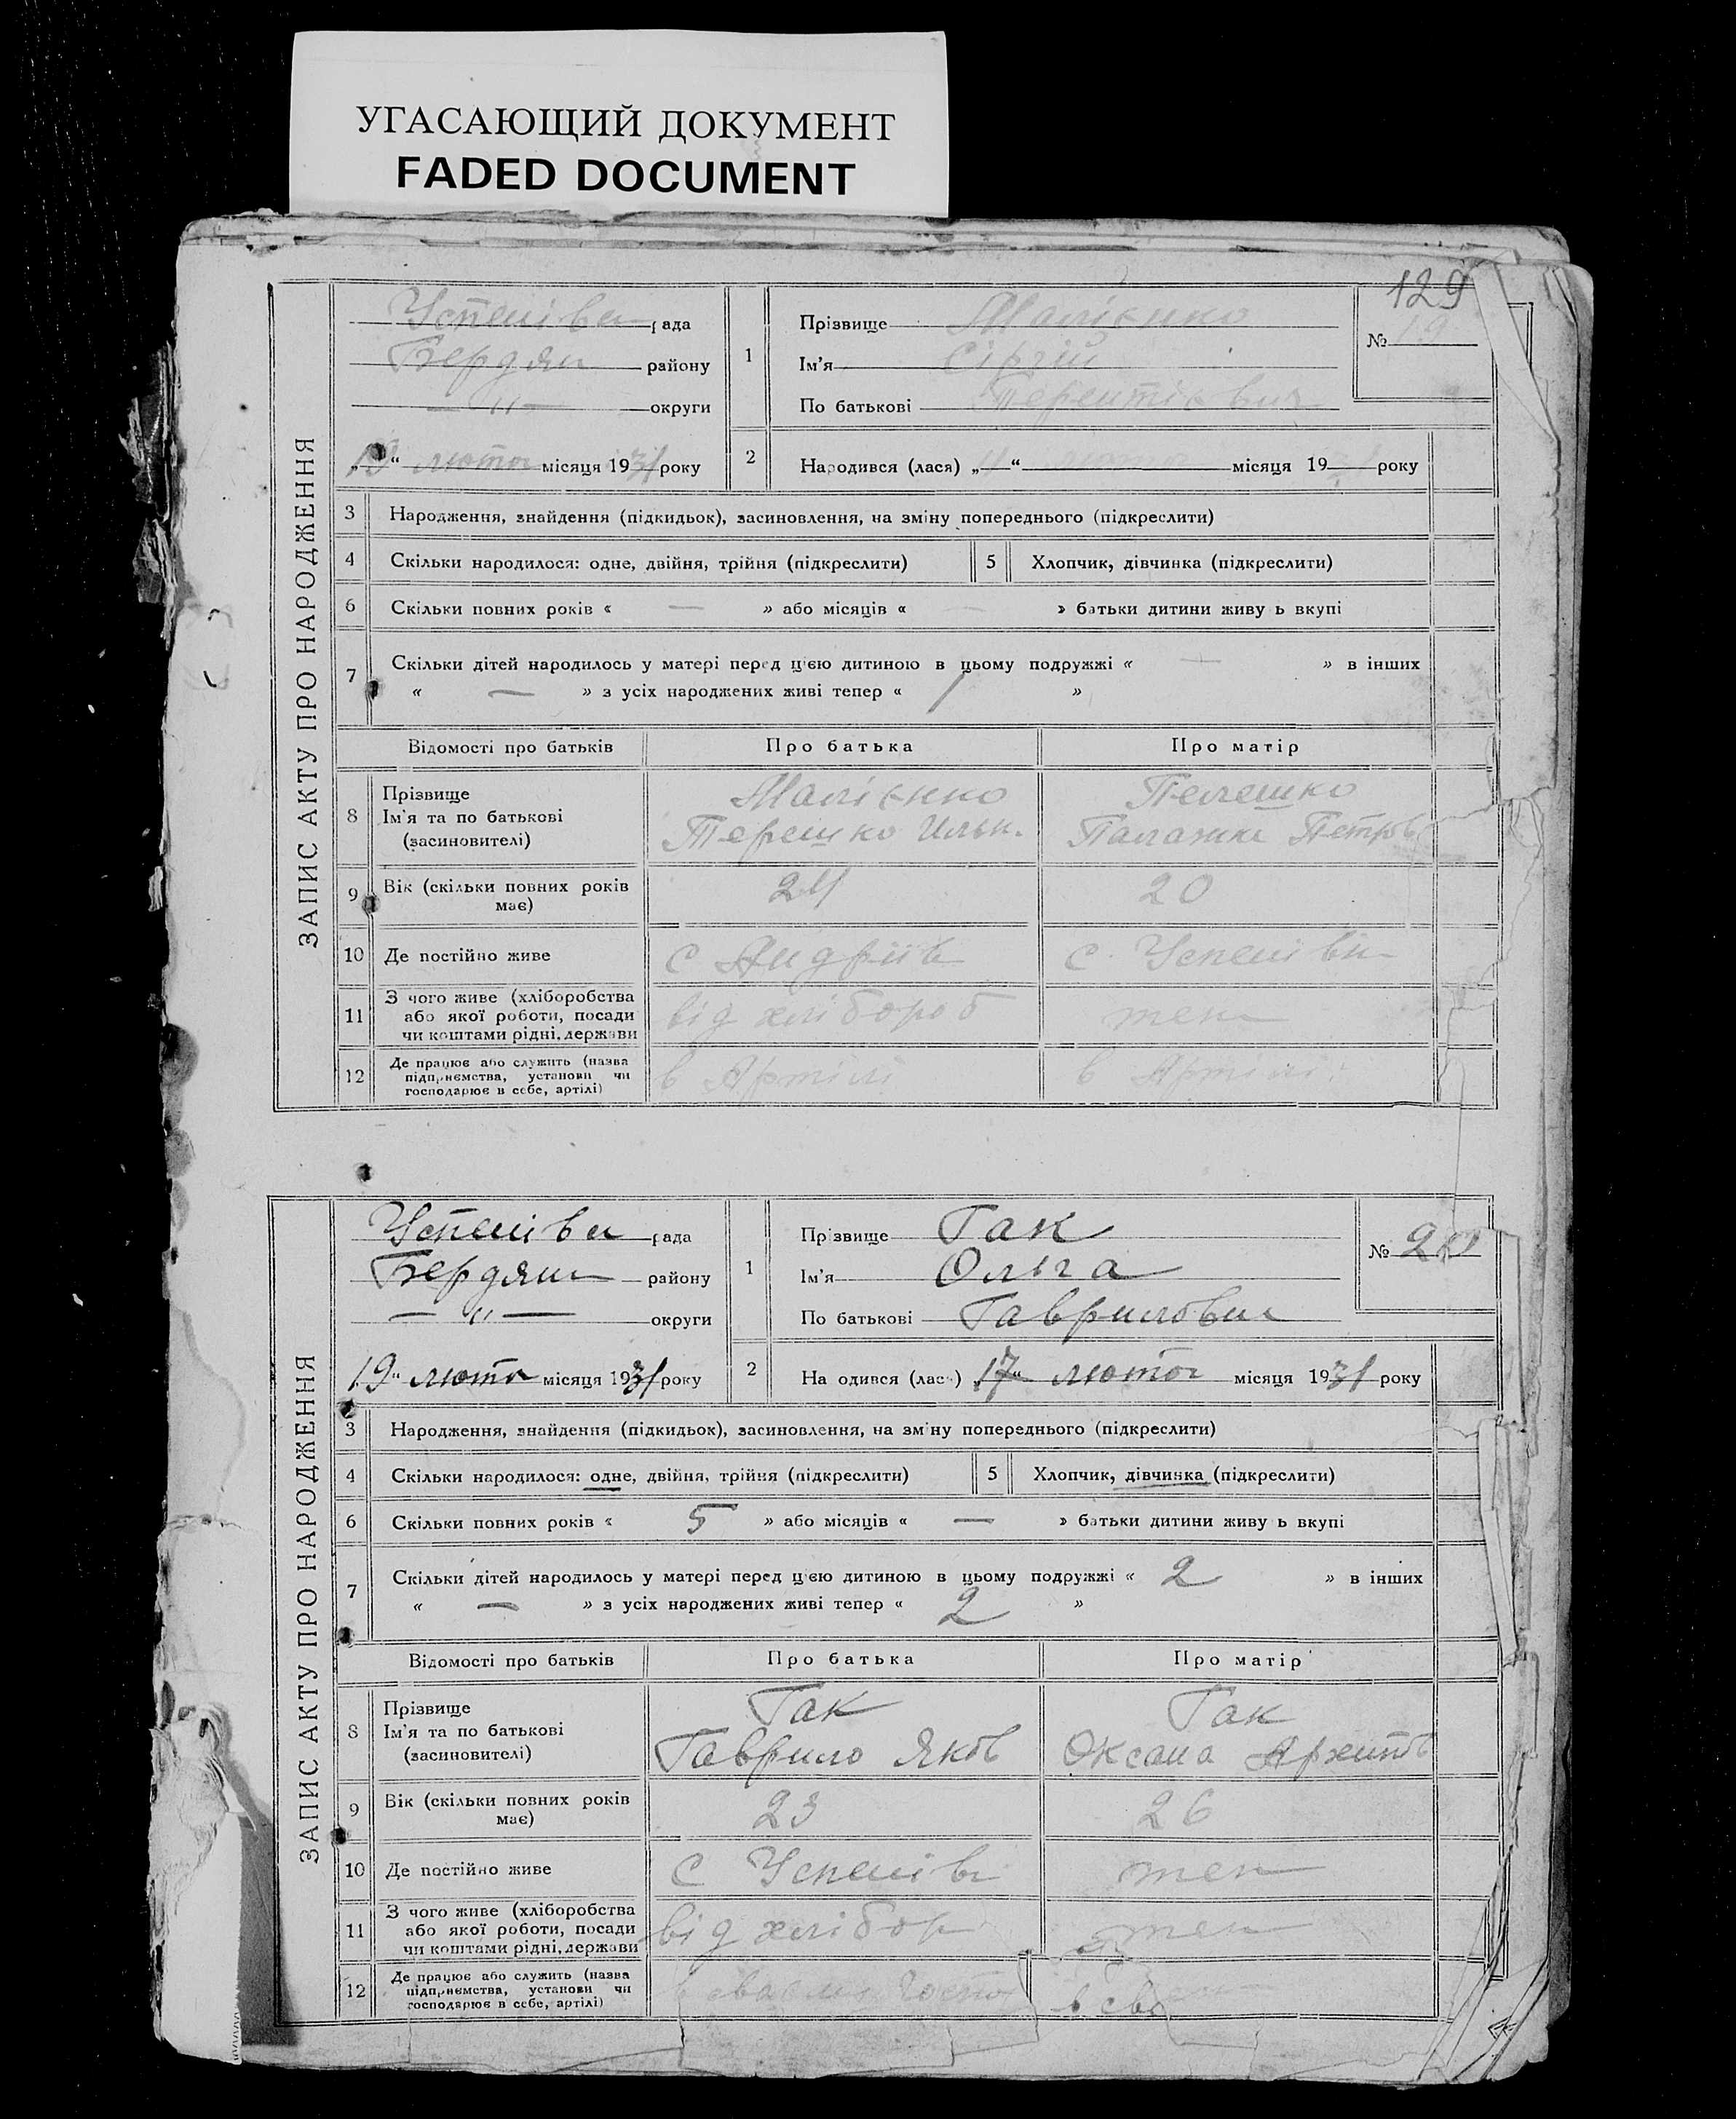 УГАСАЮЩИЙ ДОКУМЕНТ
FADED DOCUMENT
129
ЗАПИС АКТУ ПРО НАРОДЖЕННЯ
Успенівки рада
Бердян району
— " — округи
19 " люто місяця 1931 року
1 Прізвище Малієнко
Ім'я Сіргій
По батькові Терентієвич
№ 19
2 Народився (лася) „ “ місяця 19 року
3 Народження, знайдення (підкидьок), засиновлення, на зміну попереднього (підкреслити)
4 Скільки народилося: одне, двійня, трійня (підкреслити) 5 Хлопчик, дівчинка (підкреслити)
6 Скільки повних років « — » або місяців « — » батьки дитини живу ь вкупі
7 Скільки дітей народилось у матері перед цією дитиною в цьому подружжі « — » в інших
« — » з усіх народжених живі тепер « / »
Відомості про батьків Про батька Про матір
8 Прізвище Малієнко Пелешко
Ім'я та по батькові Терешко Ильк. Палажка Петров
(засиновителі)
9 Вік (скільки повних років має) 24 20
10 Де постійно живе с Андріів с. Успенівки
11 З чого живе (хліборобства від хлібороб теж
або якої роботи, посади
чи коштами рідні, держави
12 Де працює або служить (назва в Артілі в Артілі
підприємства, установи чи
господарює в себе, артілі)
ЗАПИС АКТУ ПРО НАРОДЖЕННЯ
Успенівки рада
Бердян району
— " — округи
19 " люто місяця 1931 року
1 Прізвище Гак
Ім'я Ольга
По батькові Гавриловна
№ 20
2 На одився (лас ) „17“ лютог місяця 1931 року
3 Народження, знайдення (підкидьок), засиновлення, на зм ну попереднього (підкреслити)
4 Скільки народилося: одне, двійня, трійня (підкреслити) 5 Хлопчик, дівчинка (підкреслити)
6 Скільки повних років « 5 » або місяців « — » батьки дитини живу ь вкупі
7 Скільки дітей народилось у матері перед цією дитиною в цьому подружжі « 2 » в інших
« — » з усіх народжених живі тепер « 2 »
Відомості про батьків Про батька Про матір
8 Прізвище Гак Гак
Ім'я та по батькові Гаврило Яков Оксана Архипов
(засиновителі)
9 Вік (скільки повних років має) 23 26
10 Де постійно живе с Успенівк теж
11 З чого живе (хліборобства від хлібор теж
або якої роботи, посади
чи коштами рідні, держави
12 Де працює або служить (назва в сво
підприємства, установи чи
господарює в себе, артілі)